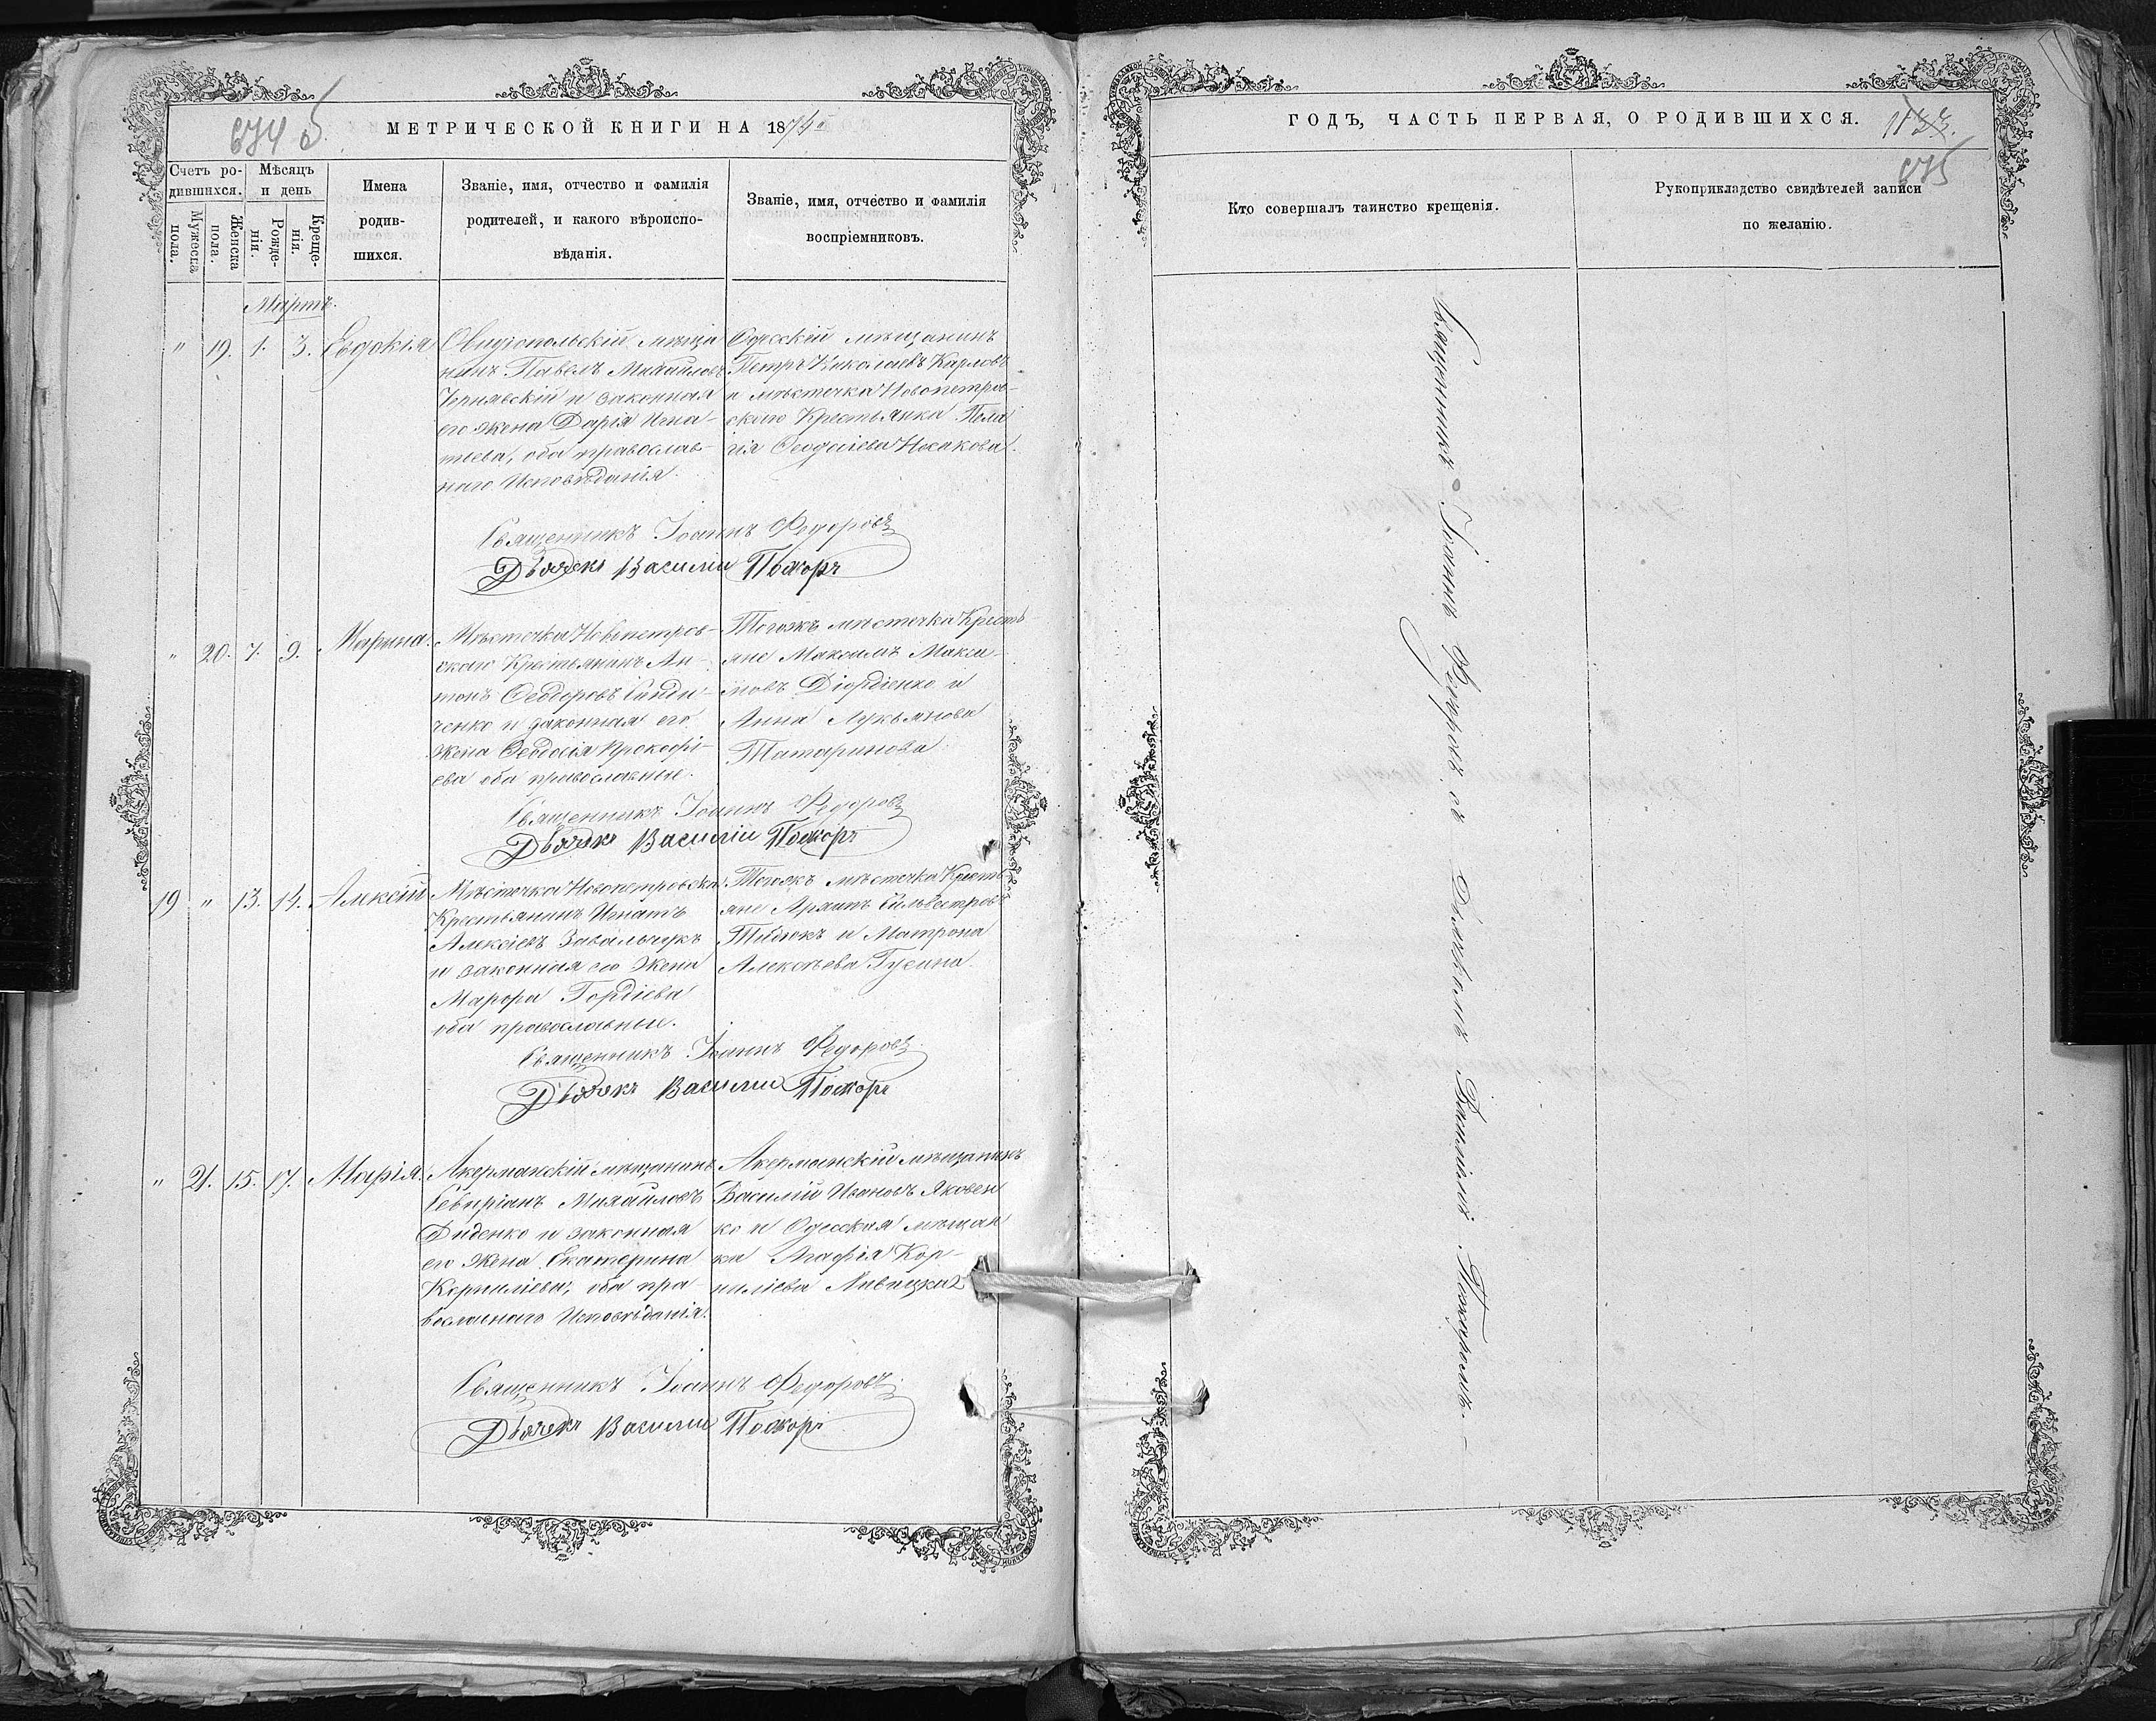 674 об
МЕТРИЧЕСКОЙ КНИГИ НА 1874й
Счетъ ро-
дившихся.
Мѣсяцъ
и день
Мужеска
пола.
Женска
пола.
Рожде-
нія.
Креще-
нія.
Имена
родив-
шихся.
Званіе, имя, отчество и фамилія
родителей, и какого вѣроиспо-
вѣданія.
Званіе, имя, отчество и фамилія
воспріемниковъ.
Мартъ.
" 19. 1. 3. Евдокія
Овидіопольскій мѣща
нинъ Павелъ Михайловъ
Чернявскій и законная
его жена Дарія Игна-
тьева, оба православ-
наго Исповѣданія.
Одесскій мѣщанинъ
Петръ Николаевъ Карловъ
и мѣстечка Новопетров-
скаго Крестьянка Пела
гія Феодосіева Носакова.
Священникъ Іоаннъ Федоровъ
Дьячекъ Василій Пожаръ
" 20. 7. 9. Марина.
Мѣстечка Новопетров-
скаго Крестьянинъ Ан-
тонъ Феодоровъ
и законная его
жена Феодосія Прокофі-
ева оба православные.
Тогожъ мѣстечка Кресть-
яне Максимъ Макси-
мовъ Діордіенко и
Анна Лукьянова
Татаринова.
Священникъ Іоаннъ Федоровъ
Дьячекъ Василій Пожаръ
19 " 13. 14. Алексій
Мѣстечка Новопетровска
Крестьянинъ Игнатъ
Алексіевъ Завальнукъ
и законная его Жена
Марфа Гордіева
оба православные.
Тогожъ мѣстечка Кресть-
яне Сильвестровъ
и Матрона
Алексѣева Гусина.
Священникъ Іоаннъ Федоровъ
Дьячекъ Василій Пожаръ
" 21. 15. 17. Марія.
Акерманскій мѣщанинъ
Севиріанъ Михайловъ
Диденко и законная
его Жена Екатерина
Корниліева, оба пра-
вославнаго Исповѣданія.
Акерманскій мѣщанинъ
Василій Ивановъ Яковен
ко и Одесская мѣщан
ка Агафія Кор-
ниліева
Священникъ Іоаннъ Федоровъ
Дьячекъ Василій Пожаръ
ГОДЪ, ЧАСТЬ ПЕРВАЯ, О РОДИВШИХСЯ.
675
Кто совершалъ таинство крещенія.
Рукоприкладство свидѣтелей записи
по желанію.
Священникъ Іоаннъ Федоровъ съ Дьячкомъ Василіемъ Пожаромъ.